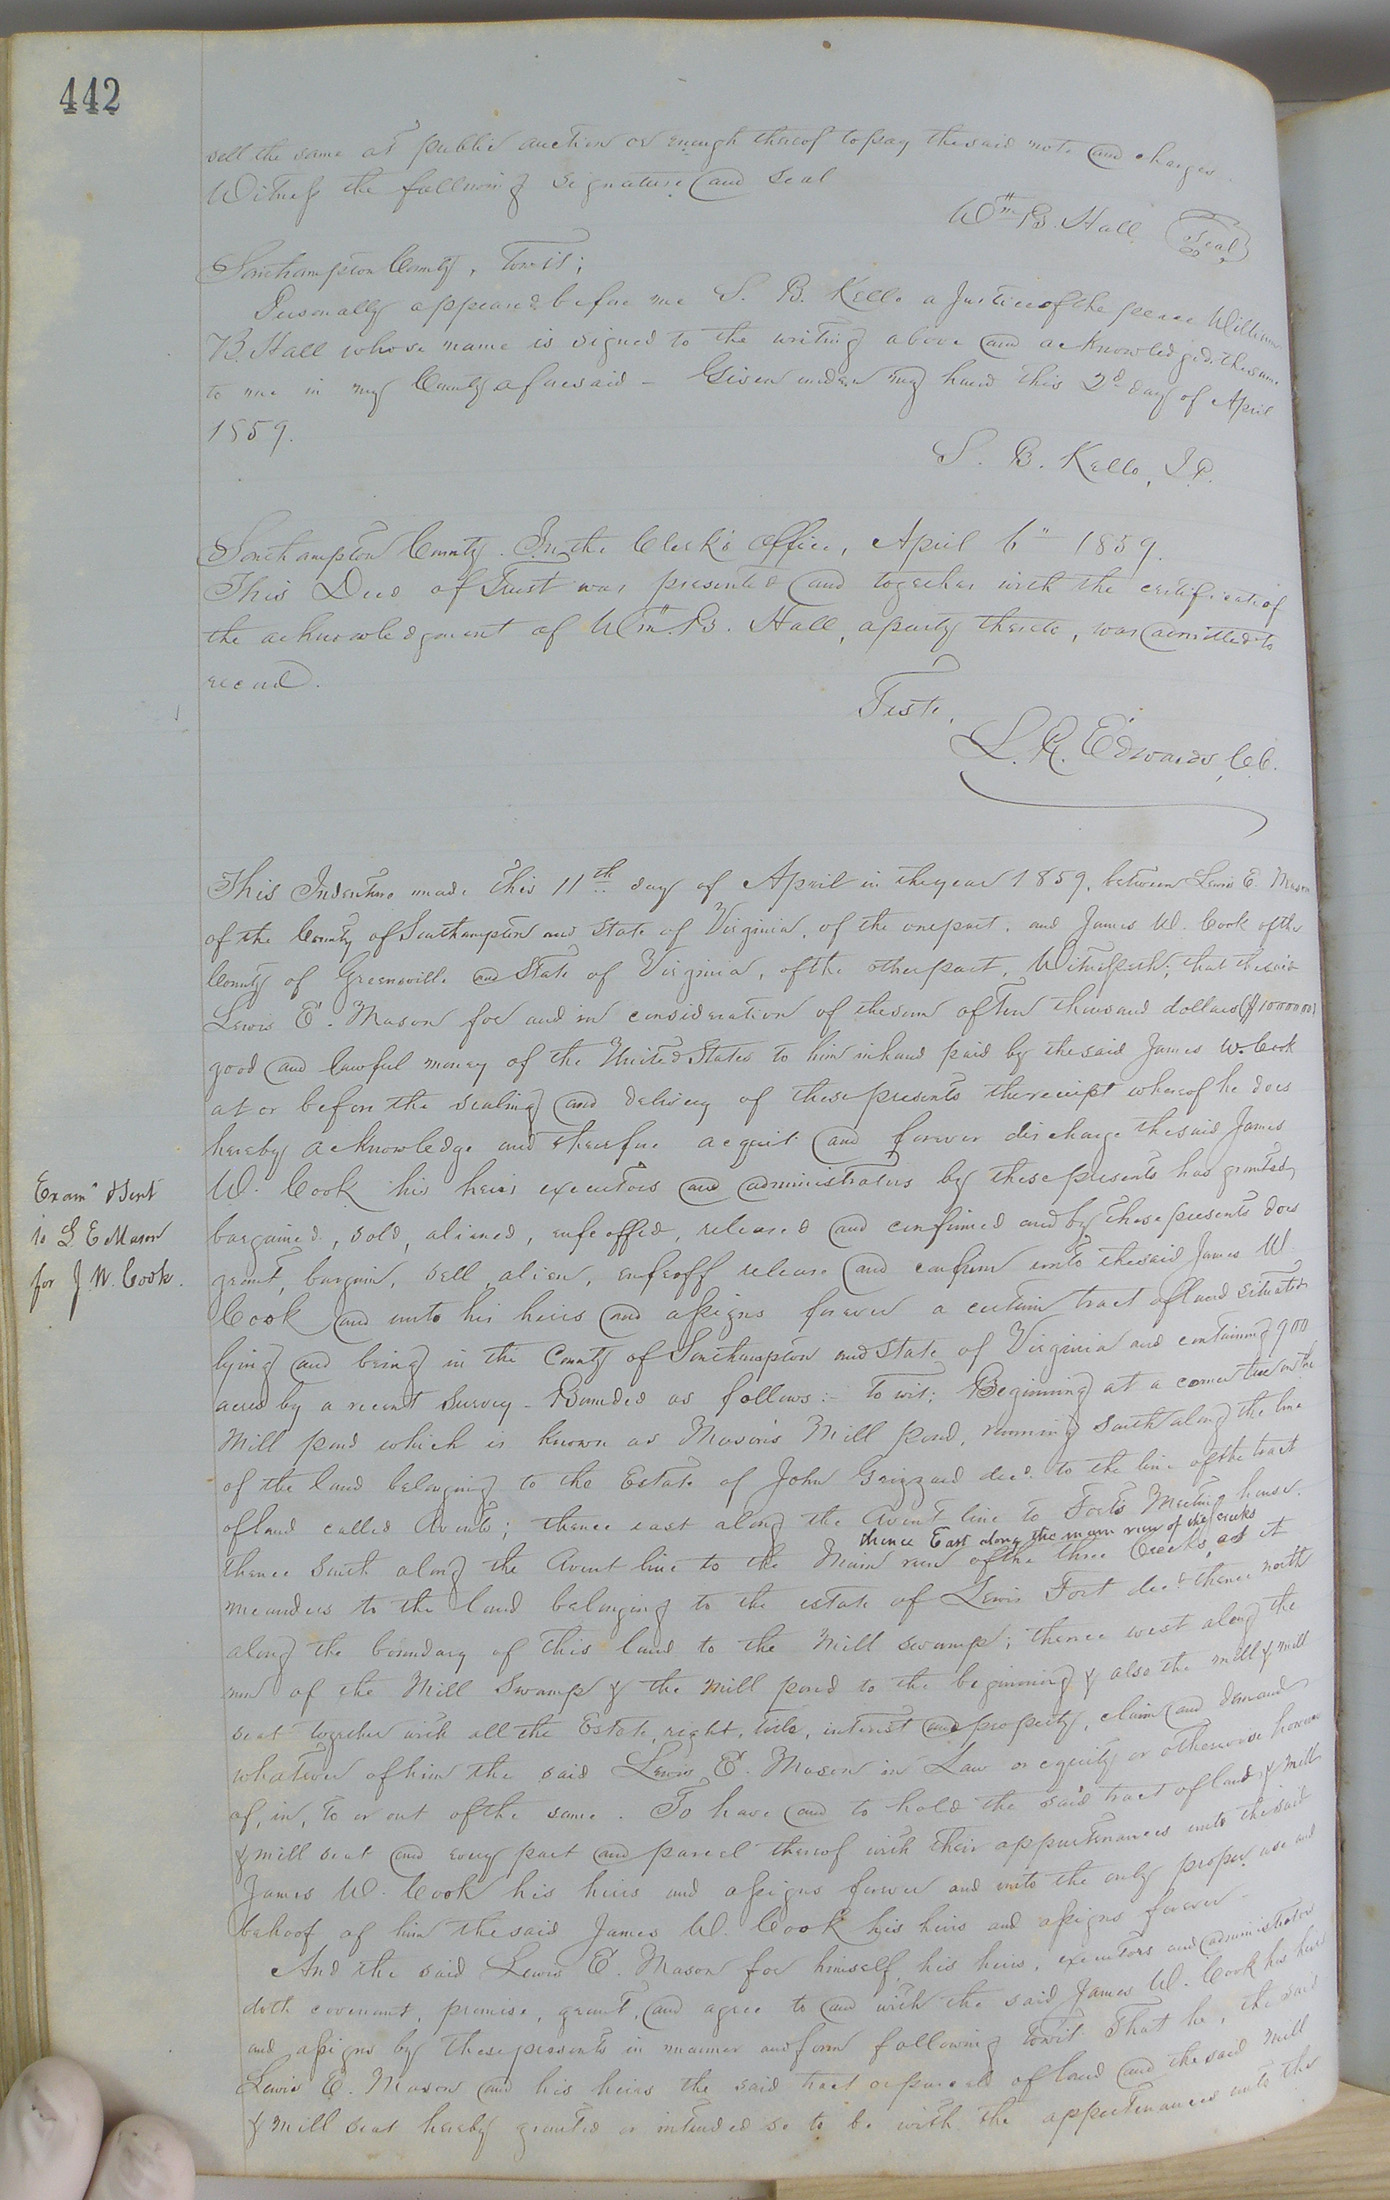 442
sell the same at public auction or enough thereof to pay the said note and charges
Witness the following signature and seal
Wm. B. Hall (Seal)
Southampton County, Towit;
Personally appeared before me S. B. Kello a Justice of the peace William
B. Hall whose name is signed to the writing above and acknowledged the same
to me in my County aforesaid - Given under my hand this 2d day of April
1859.
S. B. Kello, J.P.
Southampton County. In the Clerk's Office, April 6" 1859.
This Deed of Trust was presented and together with the certificate of
the acknowledgment of Wm. B. Hall, a party thereto, was admitted to
record.
Teste,
L. R. Edwards, C.C.
This Indenture made this 11th day of April in the year 1859, between Lewis E. Mason
of the County of Southampton and State of Virginia, of the one part, and James W. Cook of the
County of Greensville and State of Virginia, of the other part, Witnesseth; that the said
Lewis E. Mason for and in consideration of the sum of Ten thousand dollars ($10000 00)
good and lawful money of the United States to him in hand paid by the said James W. Cook
at or before the sealing and delivery of these presents the receipt whereof he does
hereby acknowledge and therefore acquit and forever discharge the said James
W. Cook his heirs executors and administrators by these presents has granted,
bargained, sold, aliened, enfeoffed, released and confirmed and by these presents does
grant, bargain, sell, alien, enfeoff release and confirm unto the said James W.
Cook and unto his heirs and assigns forever a certain tract of land situated
lying and being in the County of Southampton and State of Virginia and containing 900
acres by a recent survey - Bounded as follows:- To wit; Beginning at a corner tree on the
Mill pond which is known as Mason's Mill pond, running South along the line
of the land belonging to the Estate of John Grizzard decd. to the line of the tract
of land called Avents; thence east along the Avent line to Forts Meeting house.
thence East along the main run of the creeks
thence South along the Avent line to the Main run of the three Creeks, as it
meanders to the land belonging to the estate of Lewis Fort decd. thence north
along the boundary of this land to the Mill swamp; thence west along the
run of the Mill Swamp & the Mill pond to the beginning & also the mill & mill
seat together with all the Estate, right, title, interest and property, claim and demand
whatever of him the said Lewis E. Mason in Law or equity or otherwise however
of, in, to or out of the same. To have and to hold the said tract of land & mill
& mill seat and every part and parcel thereof with their appurtenances unto the said
James W. Cook his heirs and assigns forever and unto the only proper use and
behoof of him the said James W. Cook his heirs and assigns forever -
And the said Lewis E. Mason for himself, his heirs, executors and administrators
doth covenant, promise, grant, and agree to and with the said James W. Cook his heirs
and assigns by these presents in manner and form following towit That he, the said
Lewis E. Mason and his heirs the said tract or parcels of land and the said Mill
& Mill seat hereby granted or intended so to be with the appurtenances unto the
Examd & Sent
to L E Mason
for J. W. Cook.